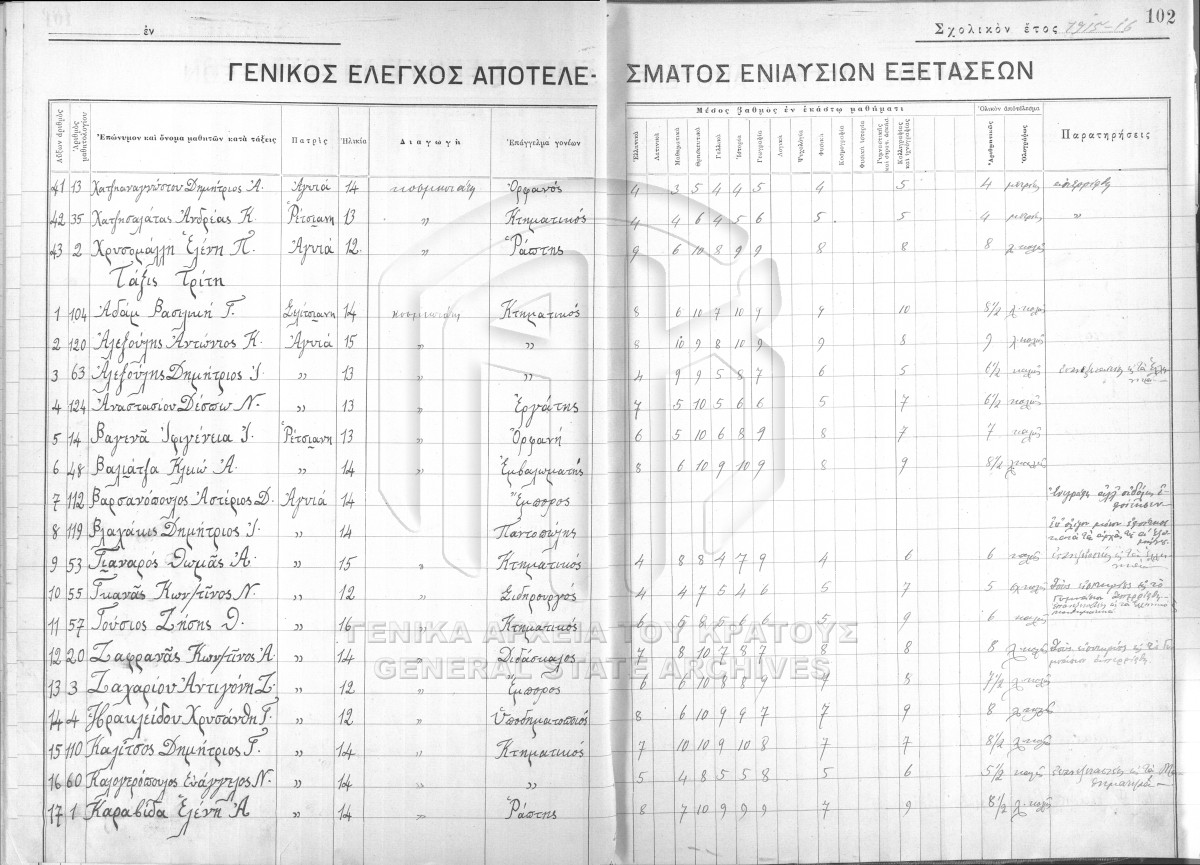 102
ἐν
Σχολικὸν ἔτος 1915-16
ΓΕΝΙΚΟΣ ΕΛΕΓΧΟΣ ΑΠΟΤΕΛΕ- ΣΜΑΤΟΣ ΕΝΙΑΥΣΙΩΝ ΕΞΕΤΑΣΕΩΝ
Αὔξων ἀριθμός Ἀριθμὸς μαθητολογίου Ἐπώνυμον καὶ ὄνομα μαθητῶν κατὰ τάξεις Πατρὶς Ἡλικία Διαγωγὴ Ἐπάγγελμα γονέων Μέσος βαθμὸς ἐν ἑκάστῳ μαθήματι Ὁλικὸν ἀποτέλεσμα Παρατηρήσεις
Ἑλληνικά Λατινικά Μαθηματικά Θρησκευτικά Γαλλικά Ἱστορία Γεωγραφία Λογική Ψυχολογία Φυσικά Κοσμογραφία Φυσικὴ ἱστορία Γυμναστικῆς καὶ στρατ. ἀσκήσ. Καλλιγραφίας καὶ ἰχνογραφίας Ἀριθμητικῶς Ὁλογράφως
41 13 Χατζηαναγνώστου Δημήτριος Ἀ. Ἁγυιά 14 κοσμιωτάτη Ὀρφανός 4 3 5 4 4 5 4 5 4 μετρίως ἀπερρίφθη
42 35 Χατζησαλάτας Ἀνδρέας Κ. Ῥέτσιανη 13 " Κτηματικός 4 4 6 4 5 6 5 5 4 μετρίως "
43 2 Χρυσομάλλη Ἑλένη Π. Ἁγυιά 12 " Ῥάπτης 9 6 10 8 9 9 8 8 8 λ. καλῶς
Τάξις Τρίτη
1 104 Ἀδάμ Βασιλικὴ Γ. Σελίτσιανη 14 κοσμιωτάτη Κτηματικός 8 6 10 7 10 9 9 10 8 1/2 λ. καλῶς
2 120 Ἀλεξούλης Ἀντώνιος Κ. Ἁγυιά 15 " " 8 10 9 8 10 9 9 8 9 λ. καλῶς
3 63 Ἀλεξούλης Δημήτριος Ἰ. " 13 " " 4 9 9 5 8 7 6 5 6 1/2 καλῶς
4 124 Ἀναστασίου Δέσπω Ν. " 13 " Ἐργάτης 7 5 10 5 6 6 5 7 6 1/2 καλῶς
5 14 Βαγενᾶ Ἰφιγένεια Ἰ. Ῥέτσιανη 13 " Ὀρφανή 6 5 10 6 8 9 8 7 7 καλῶς
6 48 Βαλιάτζα Κλειώ Ἀ. " 14 " Ἐμβαλωματής 8 6 10 9 10 9 8 9 8 1/2 λ. καλῶς
7 112 Βαρσανόπουλος Ἀστέριος Δ. Ἁγυιά 14 Ἔμπορος
8 119 Βλαχάκης Δημήτριος Ἰ. " 14 Παντοπώλης
9 53 Γιαναρός Θωμᾶς Ἀ. " 15 " Κτηματικός 4 8 8 4 7 9 4 6 6 καλῶς
10 55 Γκανᾶς Κων/τῖνος Ν. " 12 " Σιδηρουργός 4 4 7 5 4 6 5 7 5 σχ. καλῶς
11 57 Γούσιος Ζήσης Θ. " 16 " Κτηματικός 6 6 8 5 5 6 5 9 6 καλῶς
12 20 Ζαφρανᾶς Κων/τῖνος Ἀ. " 14 " Διδάσκαλος 7 8 10 7 8 7 8 8 8 λ. καλῶς
13 3 Ζαχαρίου Ἀντιγόνη Ζ. " 12 " Ἔμπορος 6 6 10 8 8 9 9 8 7 1/2 λ. καλῶς
14 4 Ἡρακλείδου Χρυσάνθη Γ. " 12 " Ὑποδηματοποιός 8 6 10 9 9 7 7 9 8 λ. καλῶς
15 110 Καλίτσος Δημήτριος Γ. " 14 " Κτηματικός 7 10 10 9 10 8 7 7 8 1/2 λ. καλῶς
16 60 Καλογερόπουλος Εὐάγγελος Ν. " 14 " " 5 4 8 5 5 8 5 6 5 1/2 καλῶς
17 1 Καραβίδα Ἑλένη Ἀ " 14 " Ῥάπτης 8 7 10 9 9 9 7 9 8 1/2 λ. καλῶς
ΓΕΝΙΚΑ ΑΡΧΕΙΑ ΤΟΥ ΚΡΑΤΟΥΣ
GENERAL STATE ARCHIVES